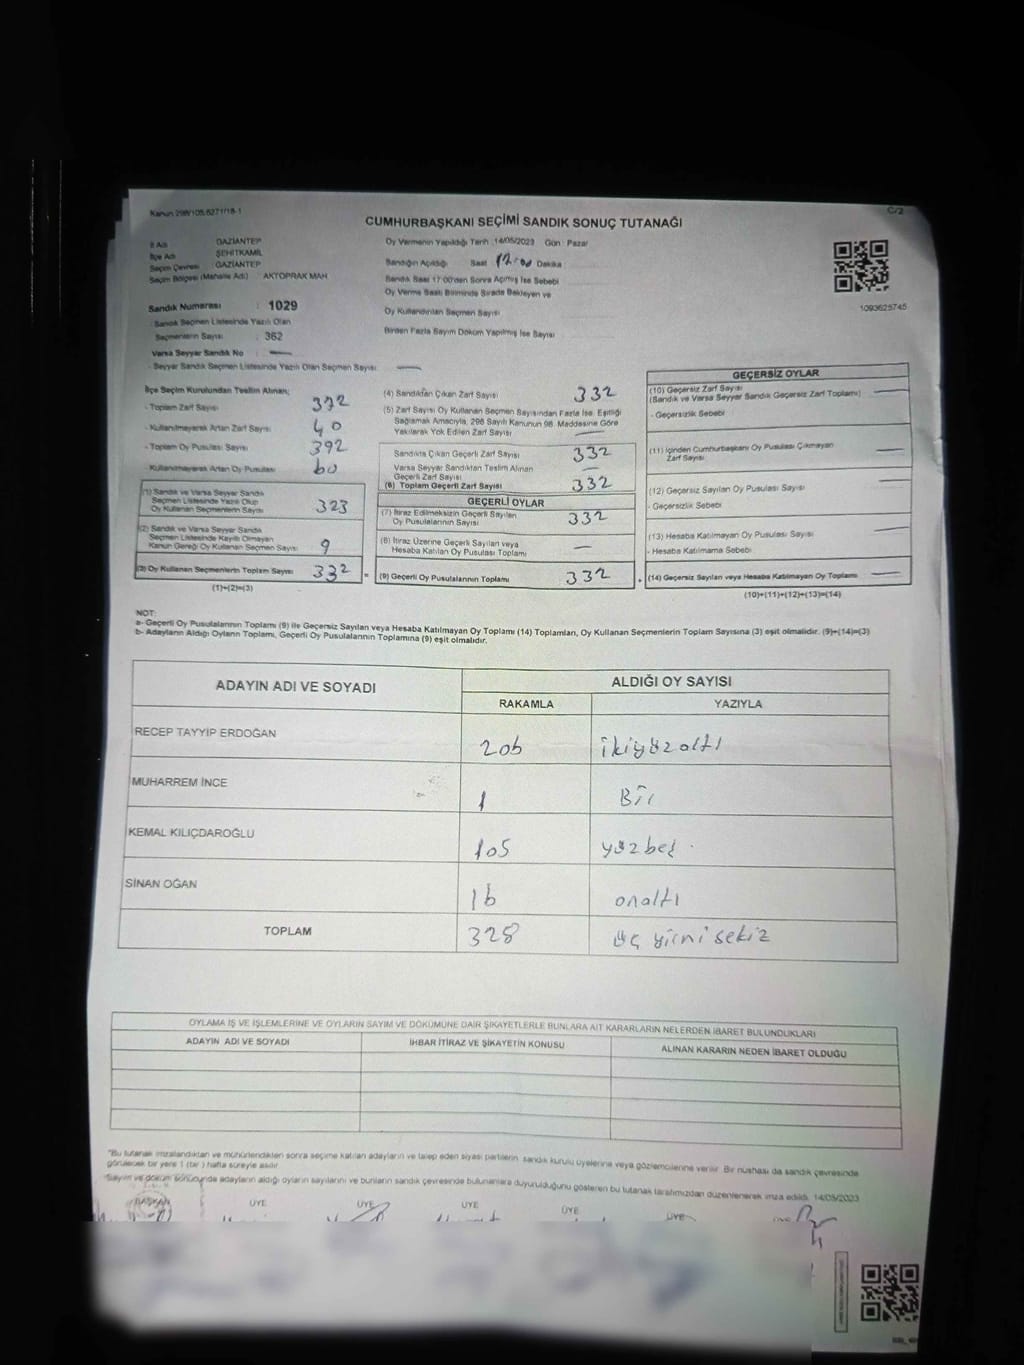 Kanun 298/105,6271/18-1
C/2
CUMHURBAŞKANI SEÇİMİ SANDIK SONUÇ TUTANAĞI
İl Adı GAZİANTEP
İlçe Adı ŞEHİTKAMİL
Seçim Çevresi GAZİANTEP
Seçim Bölgesi (Mahalle Adı) : AKTOPRAK MAH
Sandık Numarası : 1029
- Sandık Seçmen Listesinde Yazılı Olan
Seçmenlerin Sayısı : 362
Varsa Seyyar Sandık No : —
- Seyyar Sandık Seçmen Listesinde Yazılı Olan Seçmen Sayısı : —
Oy Vermenin Yapıldığı Tarih :14/05/2023 Gün : Pazar
Sandığın Açıldığı Saat Dakika
Sandık Saat 17:00'den Sonra Açılmış İse Sebebi
Oy Verme Saati Bitiminde Sırada Bekleyen ve
Oy Kullandırılan Seçmen Sayısı
Birden Fazla Sayım Döküm Yapılmış İse Sayısı
1093625745
İlçe Seçim Kurulundan Teslim Alınan;
- Toplam Zarf Sayısı 372
- Kullanılmayarak Artan Zarf Sayısı 40
- Toplam Oy Pusulası Sayısı 392
- Kullanılmayarak Artan Oy Pusulası 60
(1) Sandık ve Varsa Seyyar Sandık
Seçmen Listesinde Yazılı Olup
Oy Kullanan Seçmenlerin Sayısı 323
(2) Sandık ve Varsa Seyyar Sandık
Seçmen Listesinde Kayıtlı Olmayan
Kanun Gereği Oy Kullanan Seçmen Sayısı 9
(3) Oy Kullanan Seçmenlerin Toplam Sayısı 332 =
(1)+(2)=(3)
(4) Sandıktan Çıkan Zarf Sayısı 332
(5) Zarf Sayısı Oy Kullanan Seçmen Sayısından Fazla İse, Eşitliği
Sağlamak Amacıyla, 298 Sayılı Kanunun 98. Maddesine Göre
Yakılarak Yok Edilen Zarf Sayısı —
Sandıkta Çıkan Geçerli Zarf Sayısı 332
Varsa Seyyar Sandıktan Teslim Alınan
Geçerli Zarf Sayısı —
(6) Toplam Geçerli Zarf Sayısı 332
GEÇERLİ OYLAR
(7) İtiraz Edilmeksizin Geçerli Sayılan
Oy Pusulalarının Sayısı 332
(8) İtiraz Üzerine Geçerli Sayılan veya
Hesaba Katılan Oy Pusulası Toplamı —
(9) Geçerli Oy Pusulalarının Toplamı 332 +
GEÇERSİZ OYLAR
(10) Geçersiz Zarf Sayısı
(Sandık ve Varsa Seyyar Sandık Geçersiz Zarf Toplamı) —
- Geçersizlik Sebebi
(11) İçinden Cumhurbaşkanı Oy Pusulası Çıkmayan
Zarf Sayısı —
(12) Geçersiz Sayılan Oy Pusulası Sayısı —
- Geçersizlik Sebebi
(13) Hesaba Katılmayan Oy Pusulası Sayısı —
- Hesaba Katılmama Sebebi
(14) Geçersiz Sayılan veya Hesaba Katılmayan Oy Toplamı —
(10)+(11)+(12)+(13)=(14)
NOT:
a- Geçerli Oy Pusulalarının Toplamı (9) ile Geçersiz Sayılan veya Hesaba Katılmayan Oy Toplamı (14) Toplamları, Oy Kullanan Seçmenlerin Toplam Sayısına (3) eşit olmalıdır. (9)+(14)=(3)
b- Adayların Aldığı Oyların Toplamı, Geçerli Oy Pusulalarının Toplamına (9) eşit olmalıdır.
ADAYIN ADI VE SOYADI
ALDIĞI OY SAYISI
RAKAMLA YAZIYLA
RECEP TAYYİP ERDOĞAN 206 ikiyüzaltı
MUHARREM İNCE 1 Bir
KEMAL KILIÇDAROĞLU 105 yüzbeş
SİNAN OĞAN 16 onaltı
TOPLAM 328 üç yirmi sekiz
OYLAMA İŞ VE İŞLEMLERİNE VE OYLARIN SAYIM VE DÖKÜMÜNE DAİR ŞİKAYETLERLE BUNLARA AİT KARARLARIN NELERDEN İBARET BULUNDUKLARI
ADAYIN ADI VE SOYADI İHBAR İTİRAZ VE ŞİKAYETİN KONUSU ALINAN KARARIN NEDEN İBARET OLDUĞU
"Bu tutanak imzalandıktan ve mühürlendikten sonra seçime katılan adayların ve talep eden siyasi partilerin sandık kurulu üyelerine veya gözlemcilerine verilir. Bir nüshası da sandık çevresinde
görülecek bir yere 1 (bir) hafta süreyle asılır.
Sayım ve döküm sonucunda adayların aldığı oyların sayılarını ve bunların sandık çevresinde bulunanlara duyurulduğunu gösteren bu tutanak tarafımızdan düzenlenerek imza edildi. 14/05/2023
BAŞKAN ÜYE ÜYE ÜYE ÜYE ÜYE